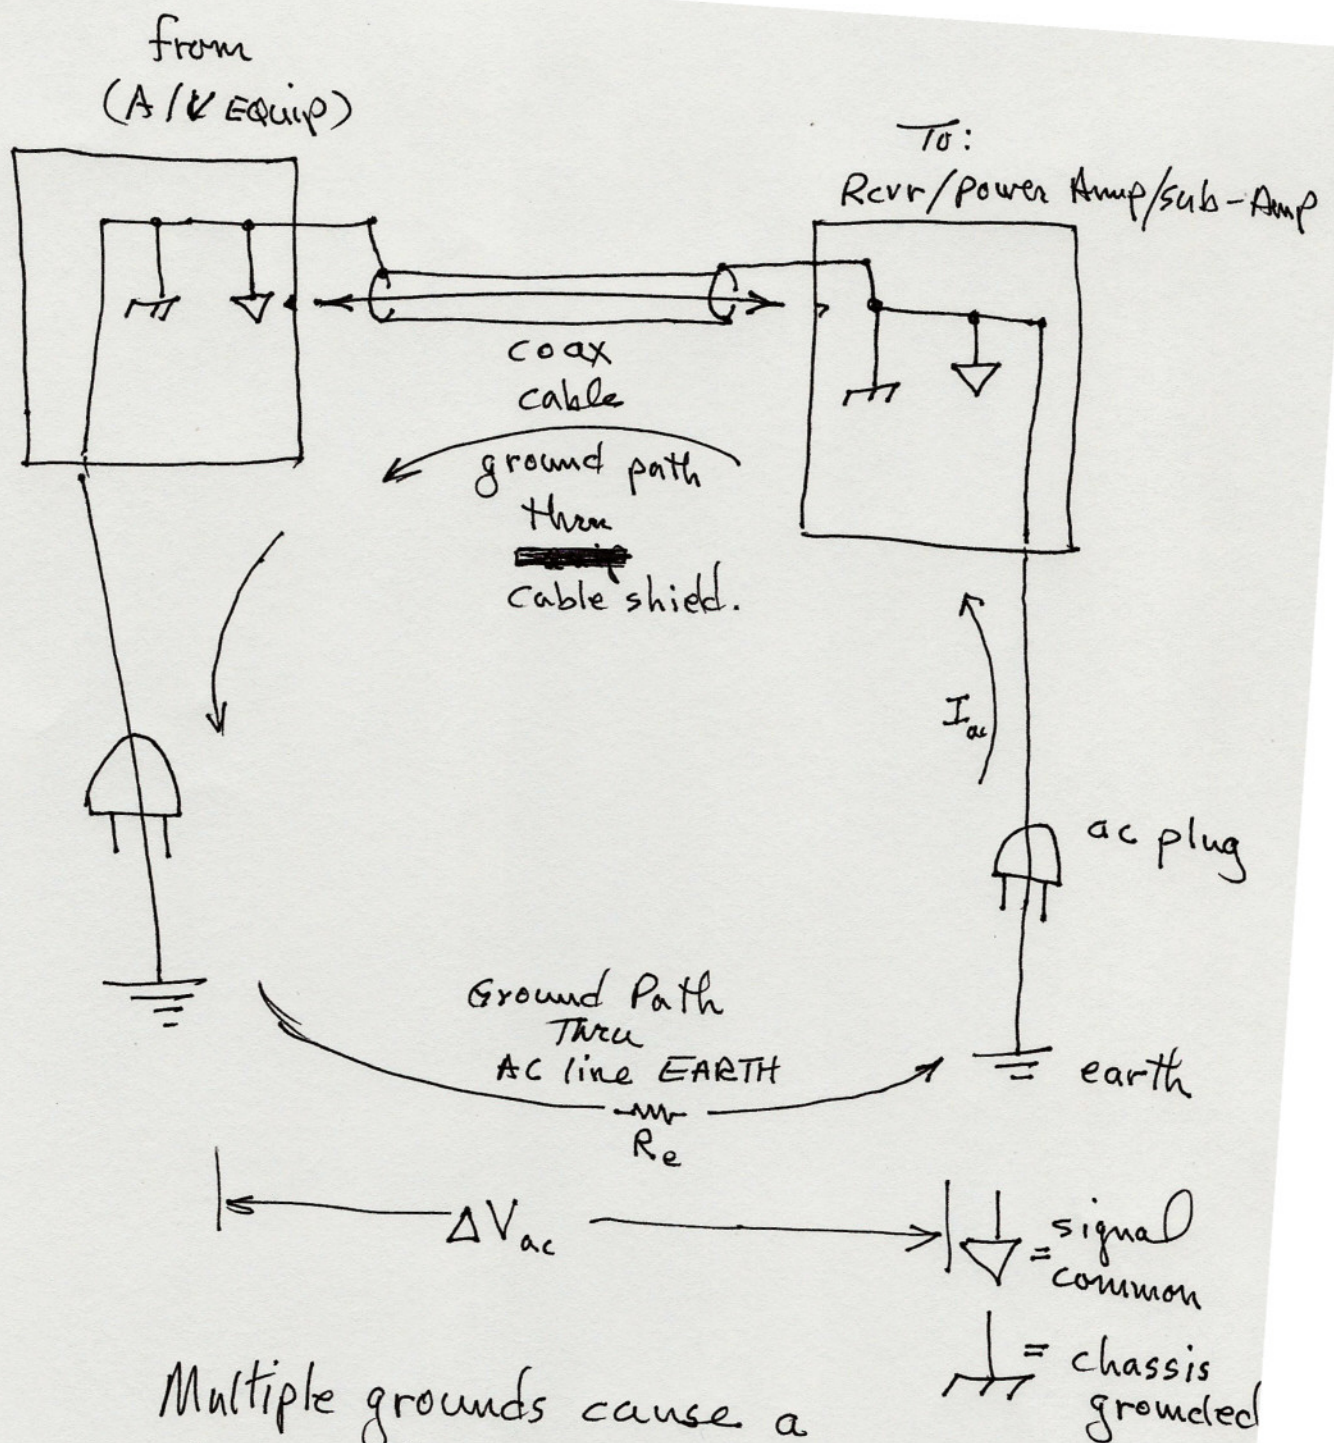 from
(A/V EQuip)
To:
Rcvr/Power Amp/sub-Amp
coax
cable
ground path
thru
cable shield.
Iac
ac plug
Ground Path
Thru
AC line EARTH
Re
earth
ΔVac
= signal
common
= chassis
grounded
Multiple grounds cause a